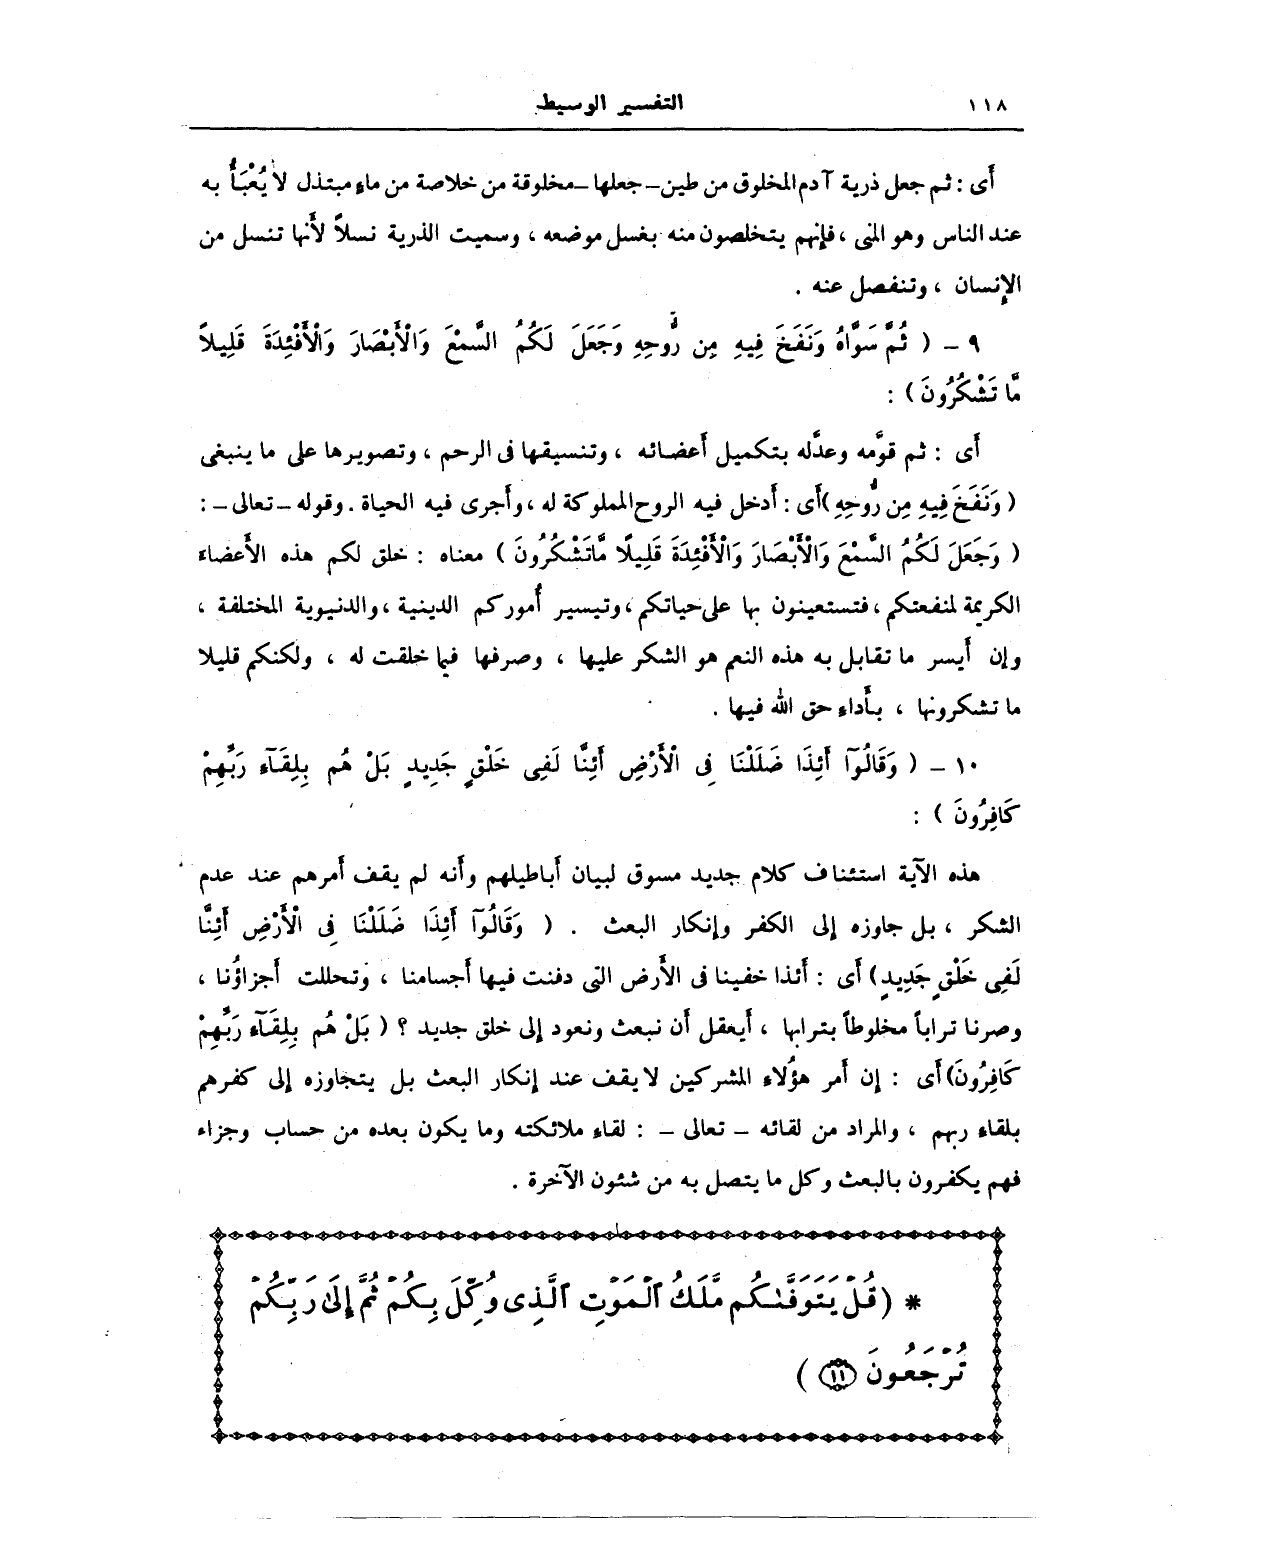 ١١٨ التفسير الوسيط
أَى : ثم جعل ذرية آدم المخلوق من طين – جعلها – مخلوقة من خلاصة من ماءٍ مبتذل لا يُعْبَأُ به
عند الناس وهو المنى ، فإنهم يتخلصون منه بغسل موضعه ، وسميت الذرية نسلاً لأَنها تنسل من
الإِنسان ، وتنفصل عنه .
٩ – ( ثُمَّ سَوَّاهُ وَنَفَخَ فِيهِ مِن رُّوحِهِ وَجَعَلَ لَكُمُ السَّمْعَ وَالْأَبْصَارَ وَالْأَفْئِدَةَ قَلِيلاً
مَّا تَشْكُرُونَ ) :
أَى : ثم قوَّمه وعدَّله بتكميل أَعضائه ، وتنسيقها فى الرحم ، وتصويرها على ما ينبغى
( وَنَفَخَ فِيهِ مِن رُّوحِهِ ) أَى : أَدخل فيه الروح المملوكة له ، وأَجرى فيه الحياة . وقوله – تعالى – :
( وَجَعَلَ لَكُمُ السَّمْعَ وَالْأَبْصَارَ وَالْأَفْئِدَةَ قَلِيلًا مَّاتَشْكُرُونَ ) معناه : خلق لكم هذه الأَعضاء
الكريمة لمنفعتكم ، فتستعينون بها على حياتكم ، وتيسير أُموركم الدينية ، والدنيوية المختلفة ،
وإن أَيسر ما تقابل به هذه النعم هو الشكر عليها ، وصرفها فيما خلقت له ، ولكنكم قليلا
ما تشكرونها ، بأَداءِ حق الله فيها .
١٠ – ( وَقَالُوٓا أَئِذَا ضَلَلْنَا فِى الْأَرْضِ أَئِنَّا لَفِى خَلْقٍ جَدِيدٍ بَلْ هُم بِلِقَآءِ رَبِّهِمْ
كَافِرُونَ ) :
هذه الآية استئناف كلام جديد مسوق لبيان أَباطيلهم وأَنه لم يقف أَمرهم عند عدم
الشكر ، بل جاوزه إلى الكفر وإنكار البعث . ( وَقَالُوٓا أَئِذَا ضَلَلْنَا فِى الْأَرْضِ أَئِنَّا
لَفِى خَلْقٍ جَدِيدٍ ) أَى : أَئذا خفينا فى الأَرض التى دفنت فيها أَجسامنا ، وتحللت أَجزاؤُنا ،
وصرنا تراباً مخلوطاً بترابها ، أَيعقل أَن نبعث ونعود إلى خلق جديد ؟ ( بَلْ هُم بِلِقَآءِ رَبِّهِمْ
كَافِرُونَ ) أَى : إن أَمر هؤُلاءِ المشركين لا يقف عند إنكار البعث بل يتجاوزه إلى كفرهم
بلقاءِ ربهم ، والمراد من لقائه – تعالى – : لقاء ملائكته وما يكون بعده من حساب وجزاء
فهم يكفرون بالبعث وكل ما يتصل به من شئون الآخرة .
* ( قُلْ يَتَوَفَّىٰكُم مَّلَكُ ٱلْمَوْتِ ٱلَّذِى وُكِّلَ بِكُمْ ثُمَّ إِلَىٰ رَبِّكُمْ
تُرْجَعُونَ ١١ )